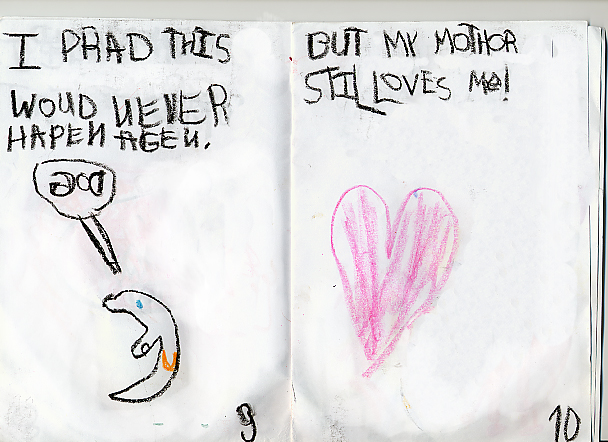 I PRAD THIS
WOUD NEVER
HAPEN AGEN.
9
BUT MY MOTHOR
STIL LOVES Me!
10